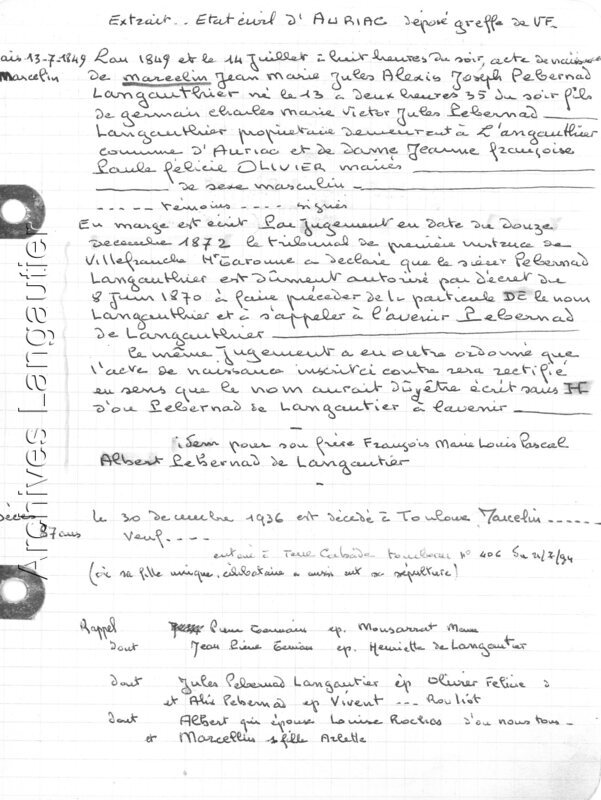 Extrait.. Etat civil d'AURIAC déposé greffe de VF.
13-7-1849 L'an 1849 et le 14 Juillet à huit heures du soir, acte de naissance
Marcelin de marcelin Jean Marie Jules Alexis Joseph Pebernad
Langauthier né le 13 à deux heures 35 du soir fils
de germain charles Marie Victor Jules Pebernad
Langauthier propriétaire demeurant à Langauthier
commune d'Auriac et de Dame Jeanne françoise
Paule félicie OLIVIER mariés
de sexe masculin
----- témoins ---- signés
En marge est écrit Par Jugement en date du douze
decembre 1872 le tribunal de première instance de
Villefranche Hte Garonne a déclaré que le sieur Pebernad
Langauthier est dûment autorisé par décret du
8 Juin 1870 à faire précéder de la particule DE le nom
Langauthier et à s'appeler à l'avenir Pebernad
de Langauthier
Le même Jugement a en outre ordonné que
l'acte de naissance inscrit ci contre sera rectifié
en sens que le nom aurait dû être écrit sans H
d'où Pebernad de Langautier à l'avenir
idem pour son frère François Marie Louis Pascal
Albert Pebernad de Langautier
décès le 30 decembre 1936 est décédé à Toulouse Marcelin ......
87 ans Veuf ....
enterré à Terre Cabade n° 406 du
(où sa fille unique, célibataire a aussi eut sa sépulture)
Rappel Pierre Germain ep. Monsarrat Marie
dont Jean Pierre ep. Henriette de Langautier
dont Jules Pebernad Langautier ép Olivier Felicie
et Alix Pebernad ep Vivent --- Rouliot
dont Albert qui épouse Louise Rochas d'ou nous tous -
et Marcellin fille Arlette
Archives Langautier